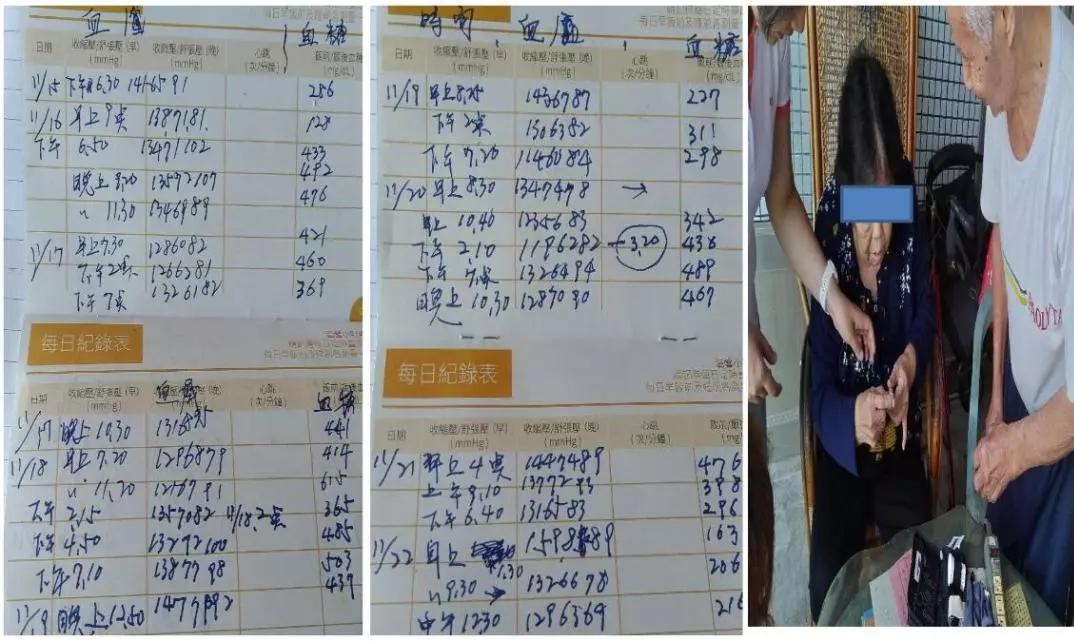 血壓 血糖
日期 收縮壓/舒張壓(早)(mmHg) 收縮壓/舒張壓(晚)(mmHg) 心跳(次/分鐘) (mg/dL)
11/15 下午6,30 1416591 286
11/16 早上9點 1387181 128
下午 6,50 13471102 433
晚上 9,20 13572107 492
〃 11,30 1346989 476
11/17 早上7,30 1286082 421
下午2點 1266281 460
下午7點 1326182 369
每日紀錄表
日期 收縮壓/舒張壓(早)(mmHg) 收縮壓/舒張壓(晚)(mmHg) 心跳(次/分鐘)
血壓 血糖
11/17 晚上10,30 441
11/18 早上7,20 1296879 414
〃 11,20 615
下午 2,15 1357082 11/18,2點 365
下午4,50 13292100 485
下午7,10 1387798 503
439
11/19 晚上12,50
時間 血壓 血糖
日期 收縮壓/舒張壓(早)(mmHg) 收縮壓/舒張壓(晚)(mmHg) 心跳(次/分鐘) (mg/dL)
11/19 早上8,25 1436787 227
下午2點 1306382 311
下午7,20 1146084 298
11/20 早上8,30 1347478 →
早上10,40 1235683 342
下午2,10 1196282 3,20 436
下午7點 1326494 489
晚上10,30 1287090 467
每日紀錄表
日期 收縮壓/舒張壓(早)(mmHg) 收縮壓/舒張壓(晚)(mmHg) 心跳(次/分鐘)
11/21 早上4點 1447489 476
上午9,10 1377293 398
下午6,40 1316583 296
11/22 早上 163
〃9,30 → 1326678 206
中午1230 1296369